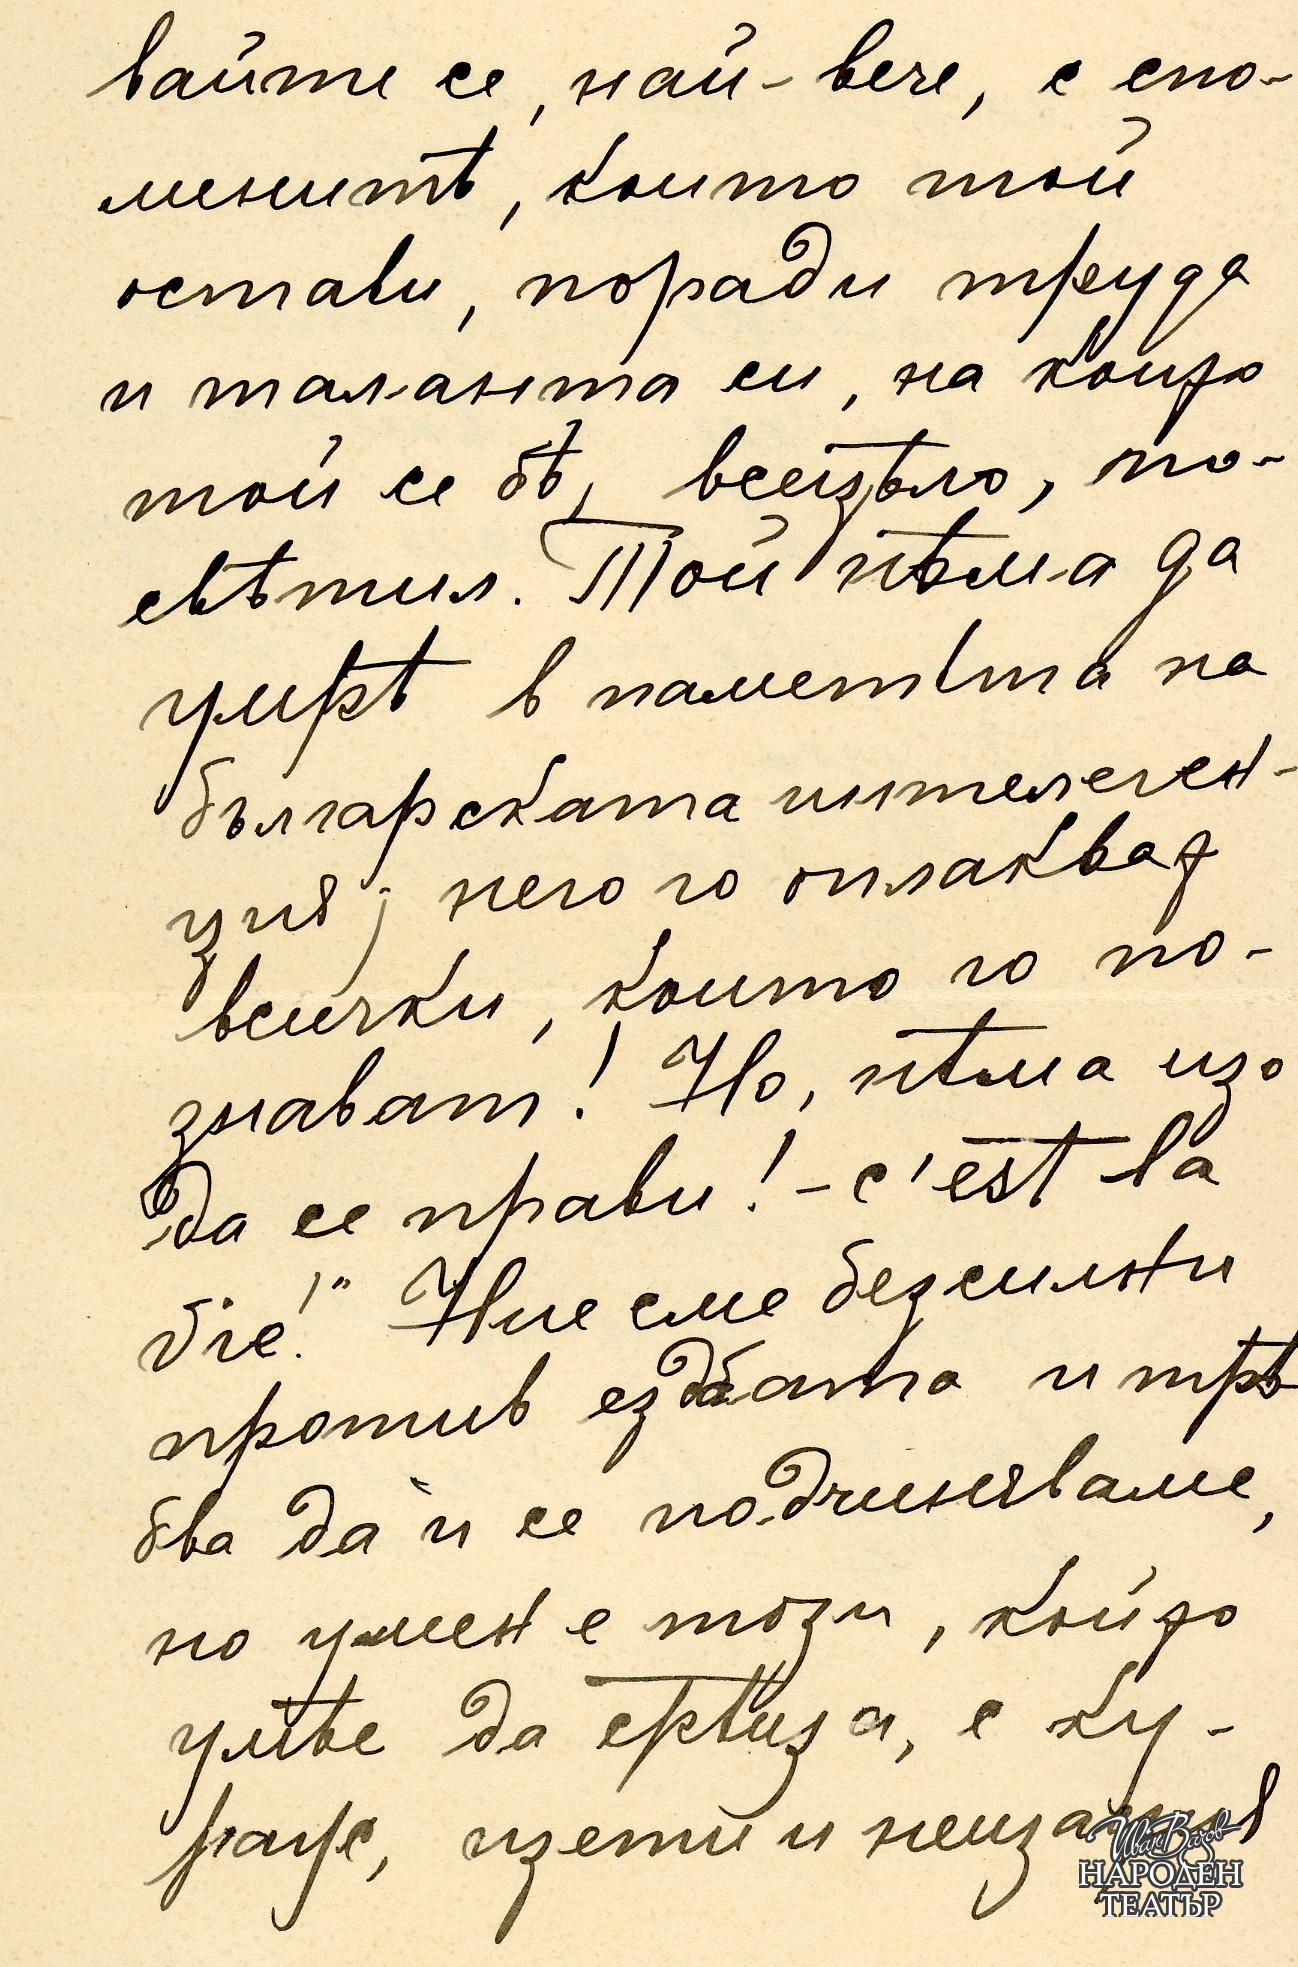 вайте се, най-вече, с спо-
менитѣ, които той
остави, поради труда
и таланта си, на които
той се бѣ, всецѣло, по-
свѣтил. Той нѣма да
умрѣ в паметьта на
българската интелеген-
ция; него го оплакват
всички, които го по-
знават! Но, нѣма що
да се прави! – c'est la
vie!" Ние сме безсилни
против сѫдбата и трѣ
бва да ѝ се подчиняваме,
но умен е този, който
умѣе да срѣща, с ку-
раж,
Иван Вазов
НАРОДЕН
ТЕАТЪР